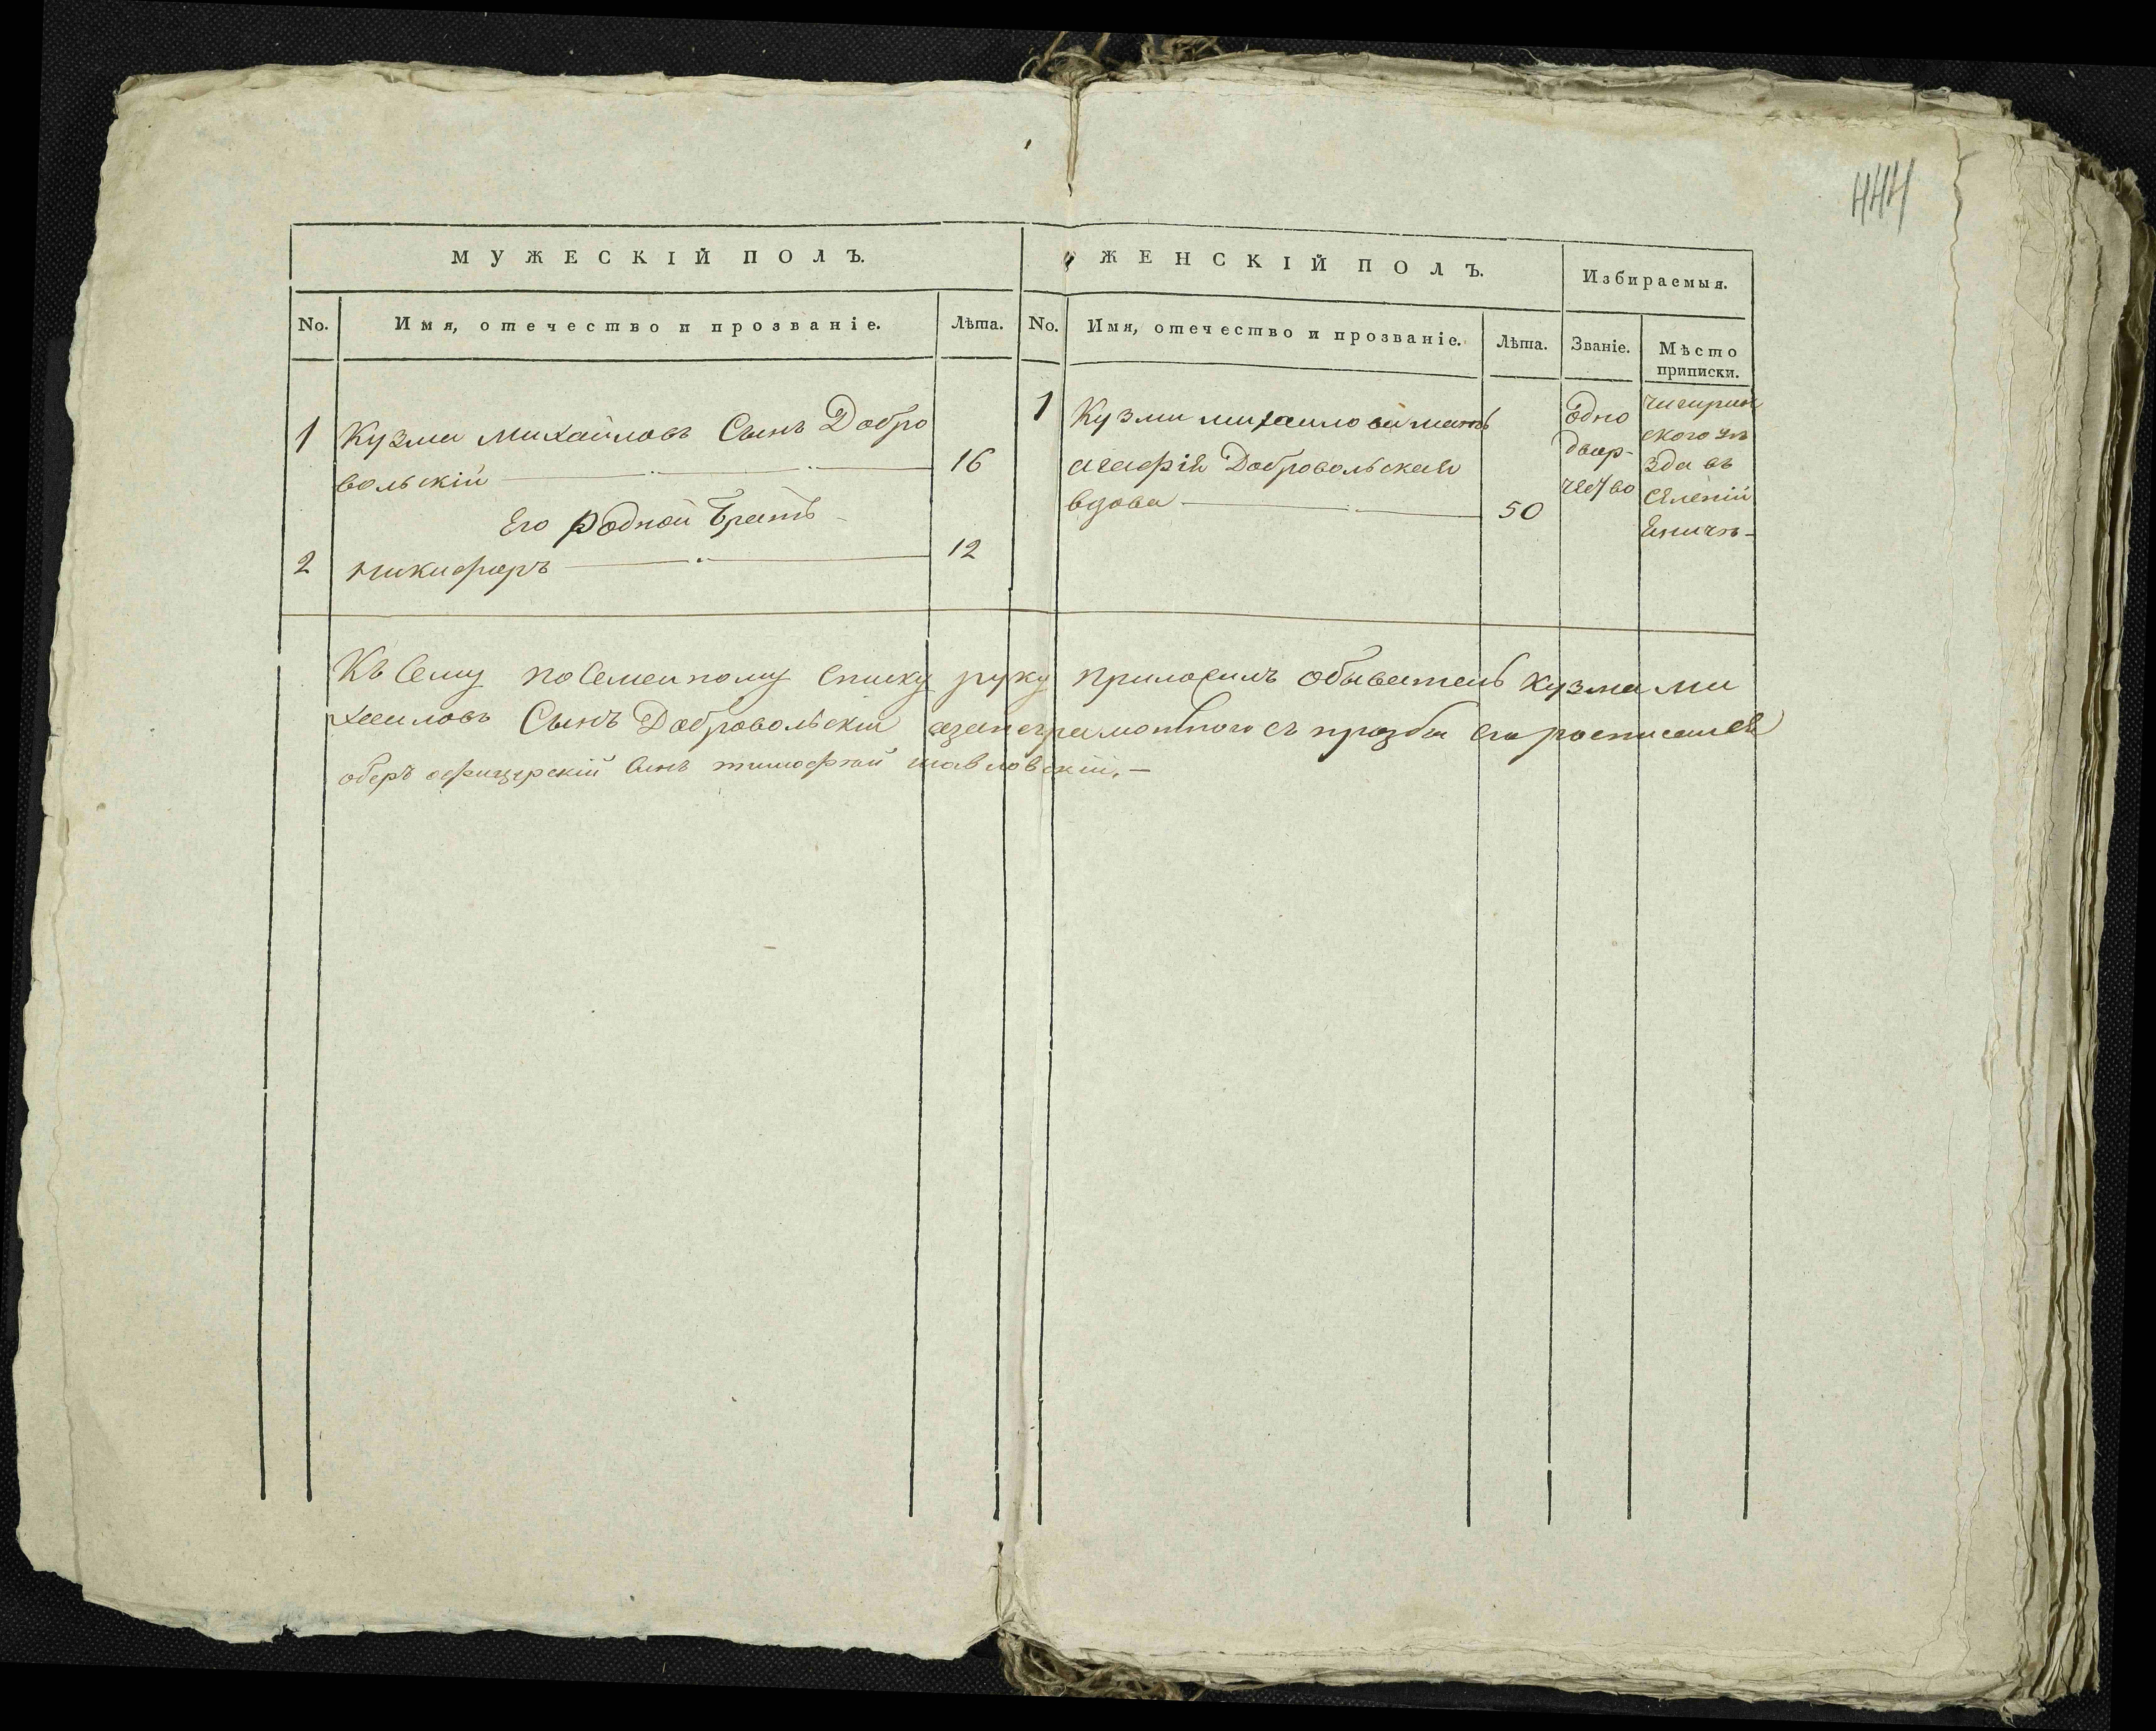 444
МУЖЕСКІЙ ПОЛЪ.
ЖЕНСКІЙ ПОЛЪ.
Избираемыя.
No.
Имя, отечество и прозваніе.
Лѣта.
No.
Имя, отечество и прозваніе.
Лѣта.
Званіе.
Мѣсто
приписки.
1 Кузма Михайловъ Сынъ Добро
вольскій 16
Его родной братъ
2 никифоръ 12
1 Кузми михаилова мать
агафія Добровольская
вдова 50
Одно
двор-
чество
чигирин
ского уѣ
зда въ
селеніи
Къ Сему поСемейному списку руку приложилъ обыватель кузма ми
хаиловъ Сынъ Добровольскій азанеграмотного съ прозби его росписался
оберъ офицерскій Синъ тимофѣй